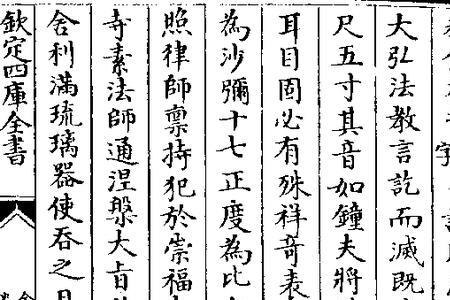 字
大弘法教言訖而滅既
尺五寸其音如鐘夫將
耳目固必有殊祥竒表
為沙彌十七正度為比
照律師禀持犯於崇福
寺素法師通涅槃大㫖
舍利滿琉璃器使吞之
欽定四庫全書